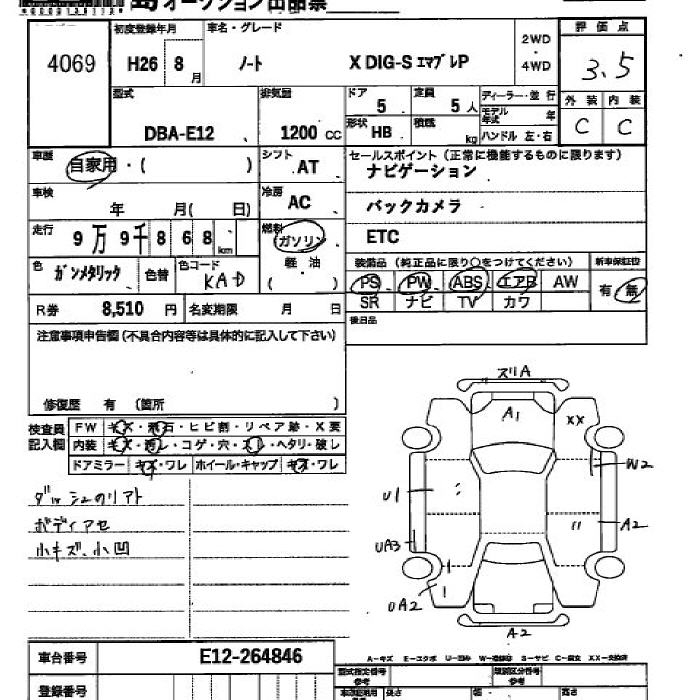 オークション出品票
4069
初度登録年月
H26 8月
車名・グレード
ノート X DIG-S エマブレP
2WD・4WD
評価点
3.5
型式
DBA-E12
排気量
1200 cc
ドア
5
定員
5人
形状
HB
積載
kg
ディーラー・並行
モデル年式 年
ハンドル 左・右
外装 内装
C C
車歴
自家用・( )
シフト
AT
セールスポイント(正常に機能するものに限ります)
ナビゲーション
バックカメラ
ETC
車検
年 月( 日)
冷房
AC
走行
9万9千868km
燃料
ガソリン
軽・油
( )
色
ガンメタリック
色替
色コード
KAD
装備品(純正品に限り○をつけてください)
PS PW ABS エアB AW
SR ナビ TV カワ
新車保証書
有・無
R券
8,510円
名変期限 月 日
後日品
注意事項申告欄(不具合内容等は具体的に記入して下さい)
修復歴 有 (箇所 )
検査員記入欄
FW キズ・飛石・ヒビ割・リペア跡・X要
内装 キズ・汚レ・コゲ・穴・スレ・ヘタリ・破レ
ドアミラー キズ・ワレ ホイール・キャップ キズ・ワレ
ダッシュのリアト
ボディアセ
小キズ、小凹
スリA
A1
XX
W2
U1
A2
UA3
UA2
A2
A-キズ E-エクボ U-凹み W-補修跡 S-サビ C-腐食 XX-交換済
車台番号
E12-264846
登録番号
型式指定番号
参考
類別区分番号
参考
長さ 幅 高さ